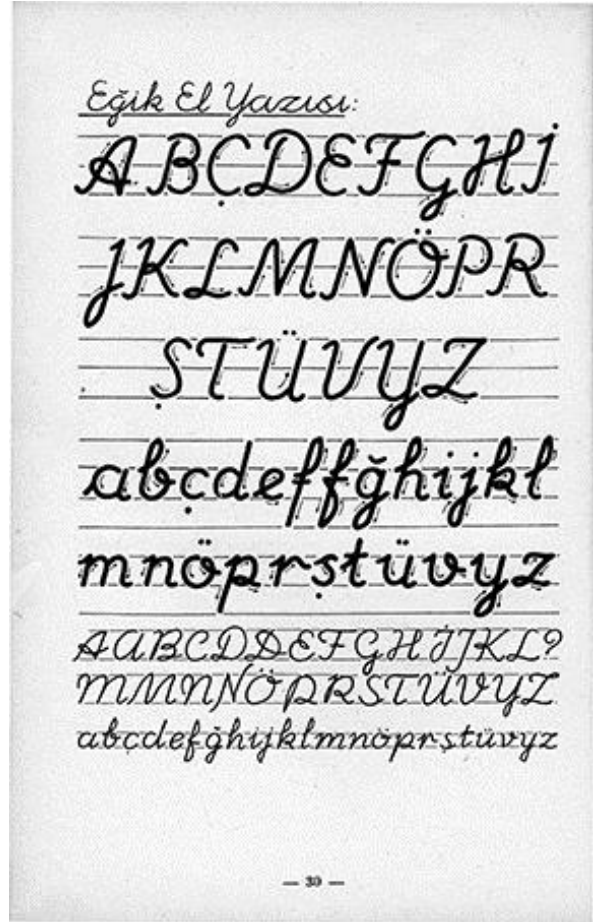 Eğik El Yazısı:
ABÇDEFGHİ
JKLMNÖPR
ŞTÜVYZ
abçdeffğhijkl
mnöprştüvyz
AABCDDEFGHİJKL?
MMNNÖPRSTÜVYZ
abcdefğhijklmnöprştüvyz
— 39 —